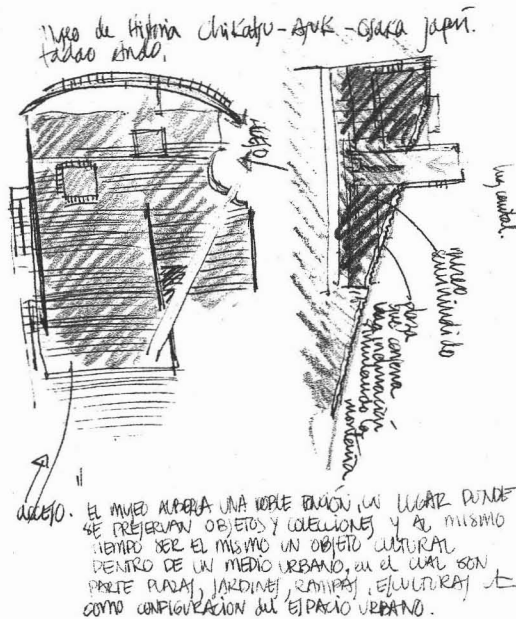 Museo de Historia Chikatsu-Asuk-Osaka Japón.
tadao Ando.
museo
luz cenital.
museo
sumergido
plaza
que conforma
una inclinación
imitando la
montaña
acceso.
EL MUSEO ALBERGA UNA DOBLE FUNCIÓN, UN LUGAR DONDE
SE PRESERVAN OBJETOS Y COLECCIONES Y AL MISMO
TIEMPO SER EL MISMO UN OBJETO CULTURAL
DENTRO DE UN MEDIO URBANO, en el cual SON
PARTE PLAZAS, JARDINES, RAMPAS, ESCULTURAS
COMO CONFIGURACIÓN del ESPACIO URBANO.